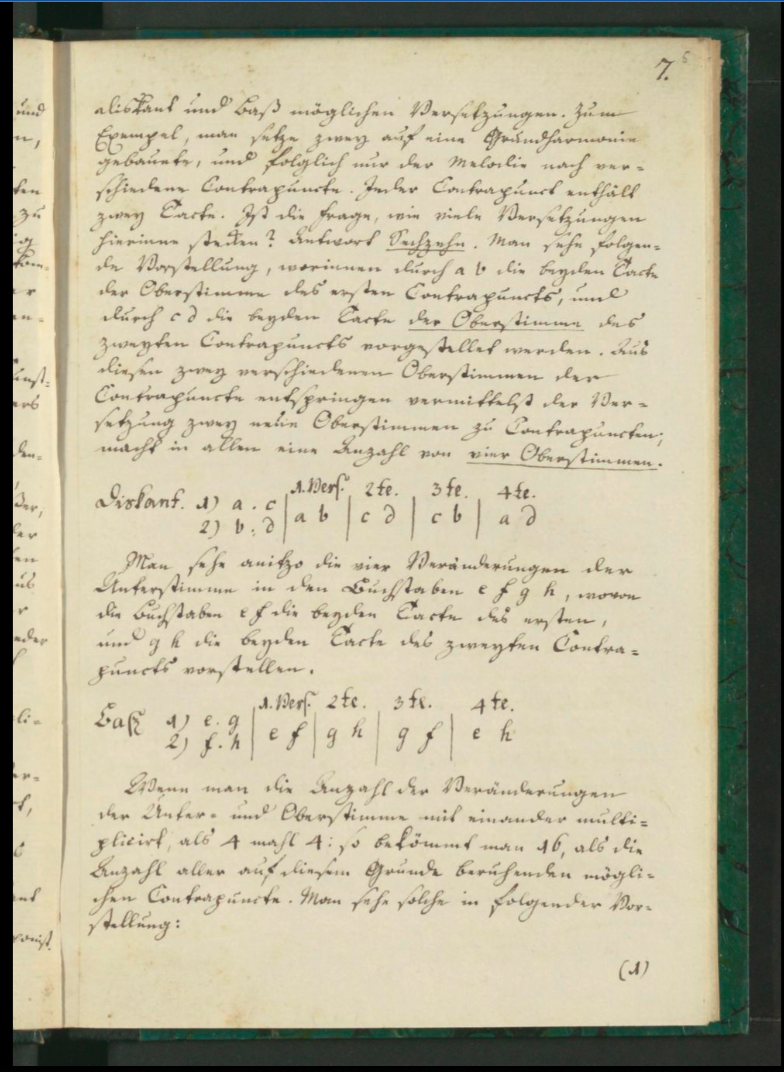 7.
5
Diskant und Baß möglichen Versetzungen. Zum
Exempel, man setze zwey auf eine Grundharmonie
gebauete, und folglich nur der Melodie nach ver=
schiedene Contrapuncte. Jeder Contrapunct enthält
zwey Tacte. Ist die Frage, wie viele Versetzungen
hierinne stecken? Antwort Sechzehn. Man sehe folgen=
de Vorstellung, worinnen durch a b die beyden Tacte
der Oberstimme des ersten Contrapuncts, und
durch c d die beyden Tacte der Oberstimme des
zweyten Contrapuncts vorgestellet werden. Aus
diesen zwey verschiedenen Oberstimmen der
Contrapuncte entspringen vermittelst der Ver=
setzung zwey neue Oberstimmen zu Contrapuncten;
macht in allen eine Anzahl von vier Oberstimmen.
1. Vers. 2te. 3te. 4te.
Diskant. 1) a . c | a b | c d | c b | a d
2) b . d
Man sehe anitzo die vier Veränderungen der
Unterstimme in den Buchstaben e f g h, wovon
die Buchstaben e f die beyden Tacte des ersten,
und g h die beyden Tacte des zweyten Contra=
puncts vorstellen.
1. Vers. 2te. 3te. 4te.
Baß 1) e . g | e f | g h | g f | e h
2) f . h
Wenn man die Anzahl der Veränderungen
der Unter= und Oberstimme mit einander multi=
plicirt, als 4 mahl 4: so bekömmt man 16, als die
Anzahl aller auf diesem Grunde beruhenden mögli=
chen Contrapuncte. Man sehe solche in folgender Vor=
stellung:
(1)